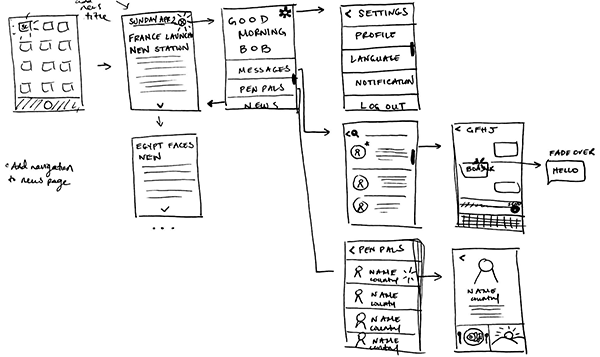 add
news
title
SUNDAY APR 2
FRANCE LAUNCH
NEW STATION
EGYPT FACES
NEW
• • •
* Add navigation
to news page
GOOD
MORNING
BOB
MESSAGES
PEN PALS
NEWS
< SETTINGS
PROFILE
LANGUAGE
NOTIFICATION
LOG OUT
< GFHJ
FADE OVER
HELLO
< PEN PALS
NAME
country
NAME
country
NAME
country
NAME
country
<
NAME
country